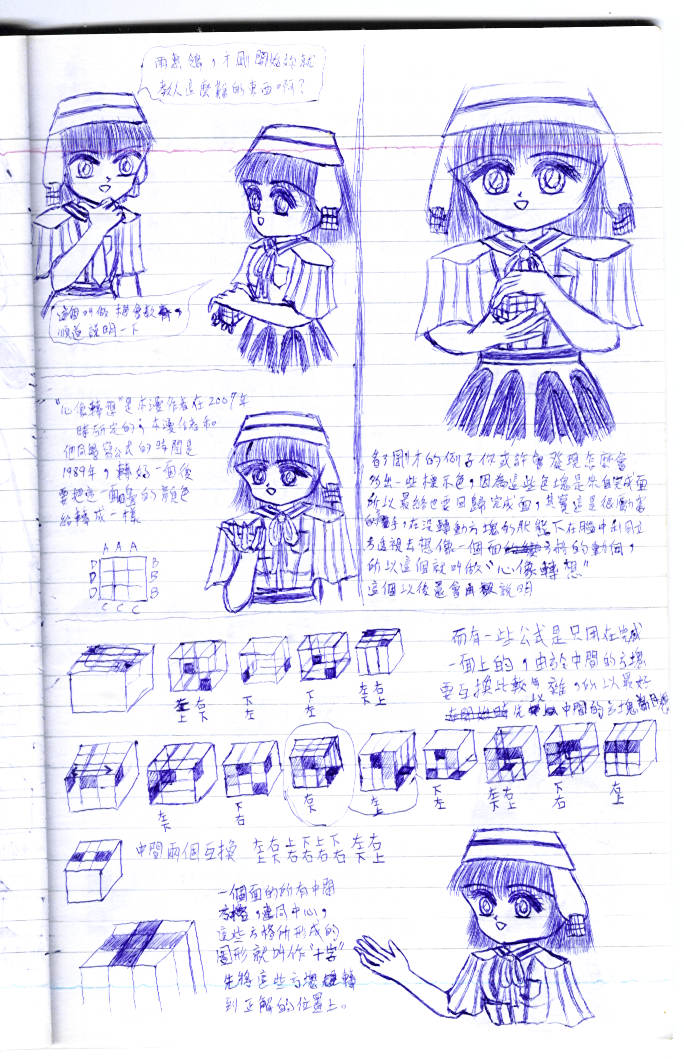 雨無鍋，才剛開始你就
教人這麼難的東西啊？
這個叫做機會教育，
順道說明一下
"心像轉想"是本漫作者在2009年
時研究的，本漫作者和
他同學寫公式的時間是
1989年，轉好一面後
要把這一面的顏色
給轉成一樣
A A A
D B
D B
D B
C C C
看了剛才的例子你或許會發現怎麼會
多出一些提示色，因為這些色塊是來自完成面
所以最終也要回歸完成面，其實這是很厲害
的，在沒轉動方塊的狀態下在腦中利用立
方透視去想像一個面方格的動向，
所以這個就叫做"心像轉想"
這個以後還會再說明
而有一些公式是只用在
一面上的，由於中間的方塊
要互換比較難，所以最好
先中間的方塊
左右
上下
下
左
下上
左右
左右
上下
左
下
下
右
右
下
左
上
下
左
下左
右上
下
右
左
上
中間兩個互換 左右上下上下左右
左下右右右右下上
一個面的所有中間
方格，連同中心，
這些方格所形成的
圖形就叫作"十字"
先將這些方塊轉
到正解的位置上。